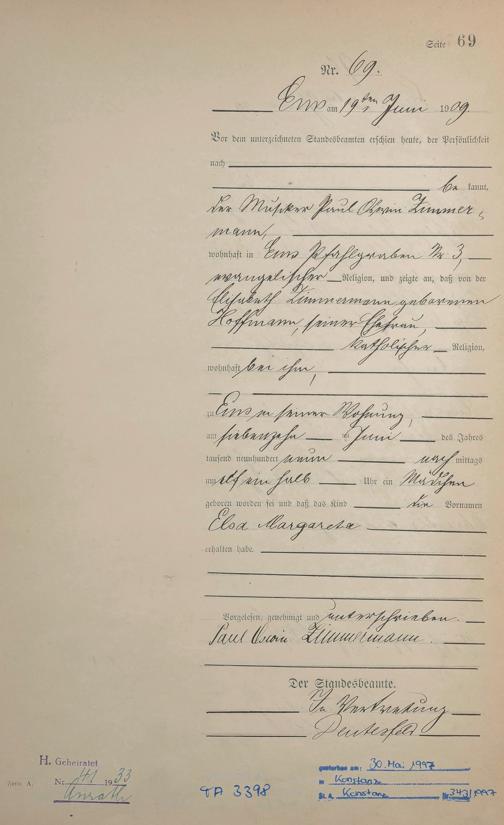 Seite 69
Nr. 69.
Ems am 19ten Juni 1909
Vor dem unterzeichneten Standesbeamten erschien heute, der Persönlichkeit
nach
be kannt,
der Musiker Paul Oswin Zimmer-
mann,
wohnhaft in Ems Pfahlgraben Nr 3,
evangelischer Religion, und zeigte an, daß von der
Elisabeth Zimmermann geborenen
Hoffmann, seiner Ehefrau,
katholischer Religion,
wohnhaft bei ihm,
zu Ems in seiner Wohnung,
am siebenzehn ten Juni des Jahres
tausend neunhundert neun nach mittags
um elf ein halb Uhr ein Mädchen
geboren worden sei und daß das Kind die Vornamen
Elsa Margareta
erhalten habe.
Vorgelesen, genehmigt und unterschrieben.
Paul Oswin Zimmermann.
Der Standesbeamte.
In Vertretung
H. Geheiratet
Nr. 41 1933
Anrath
TA 3398
gestorben am: 30. Mai 1997
in Konstanz
St. A. Konstanz Nr. 343/1997